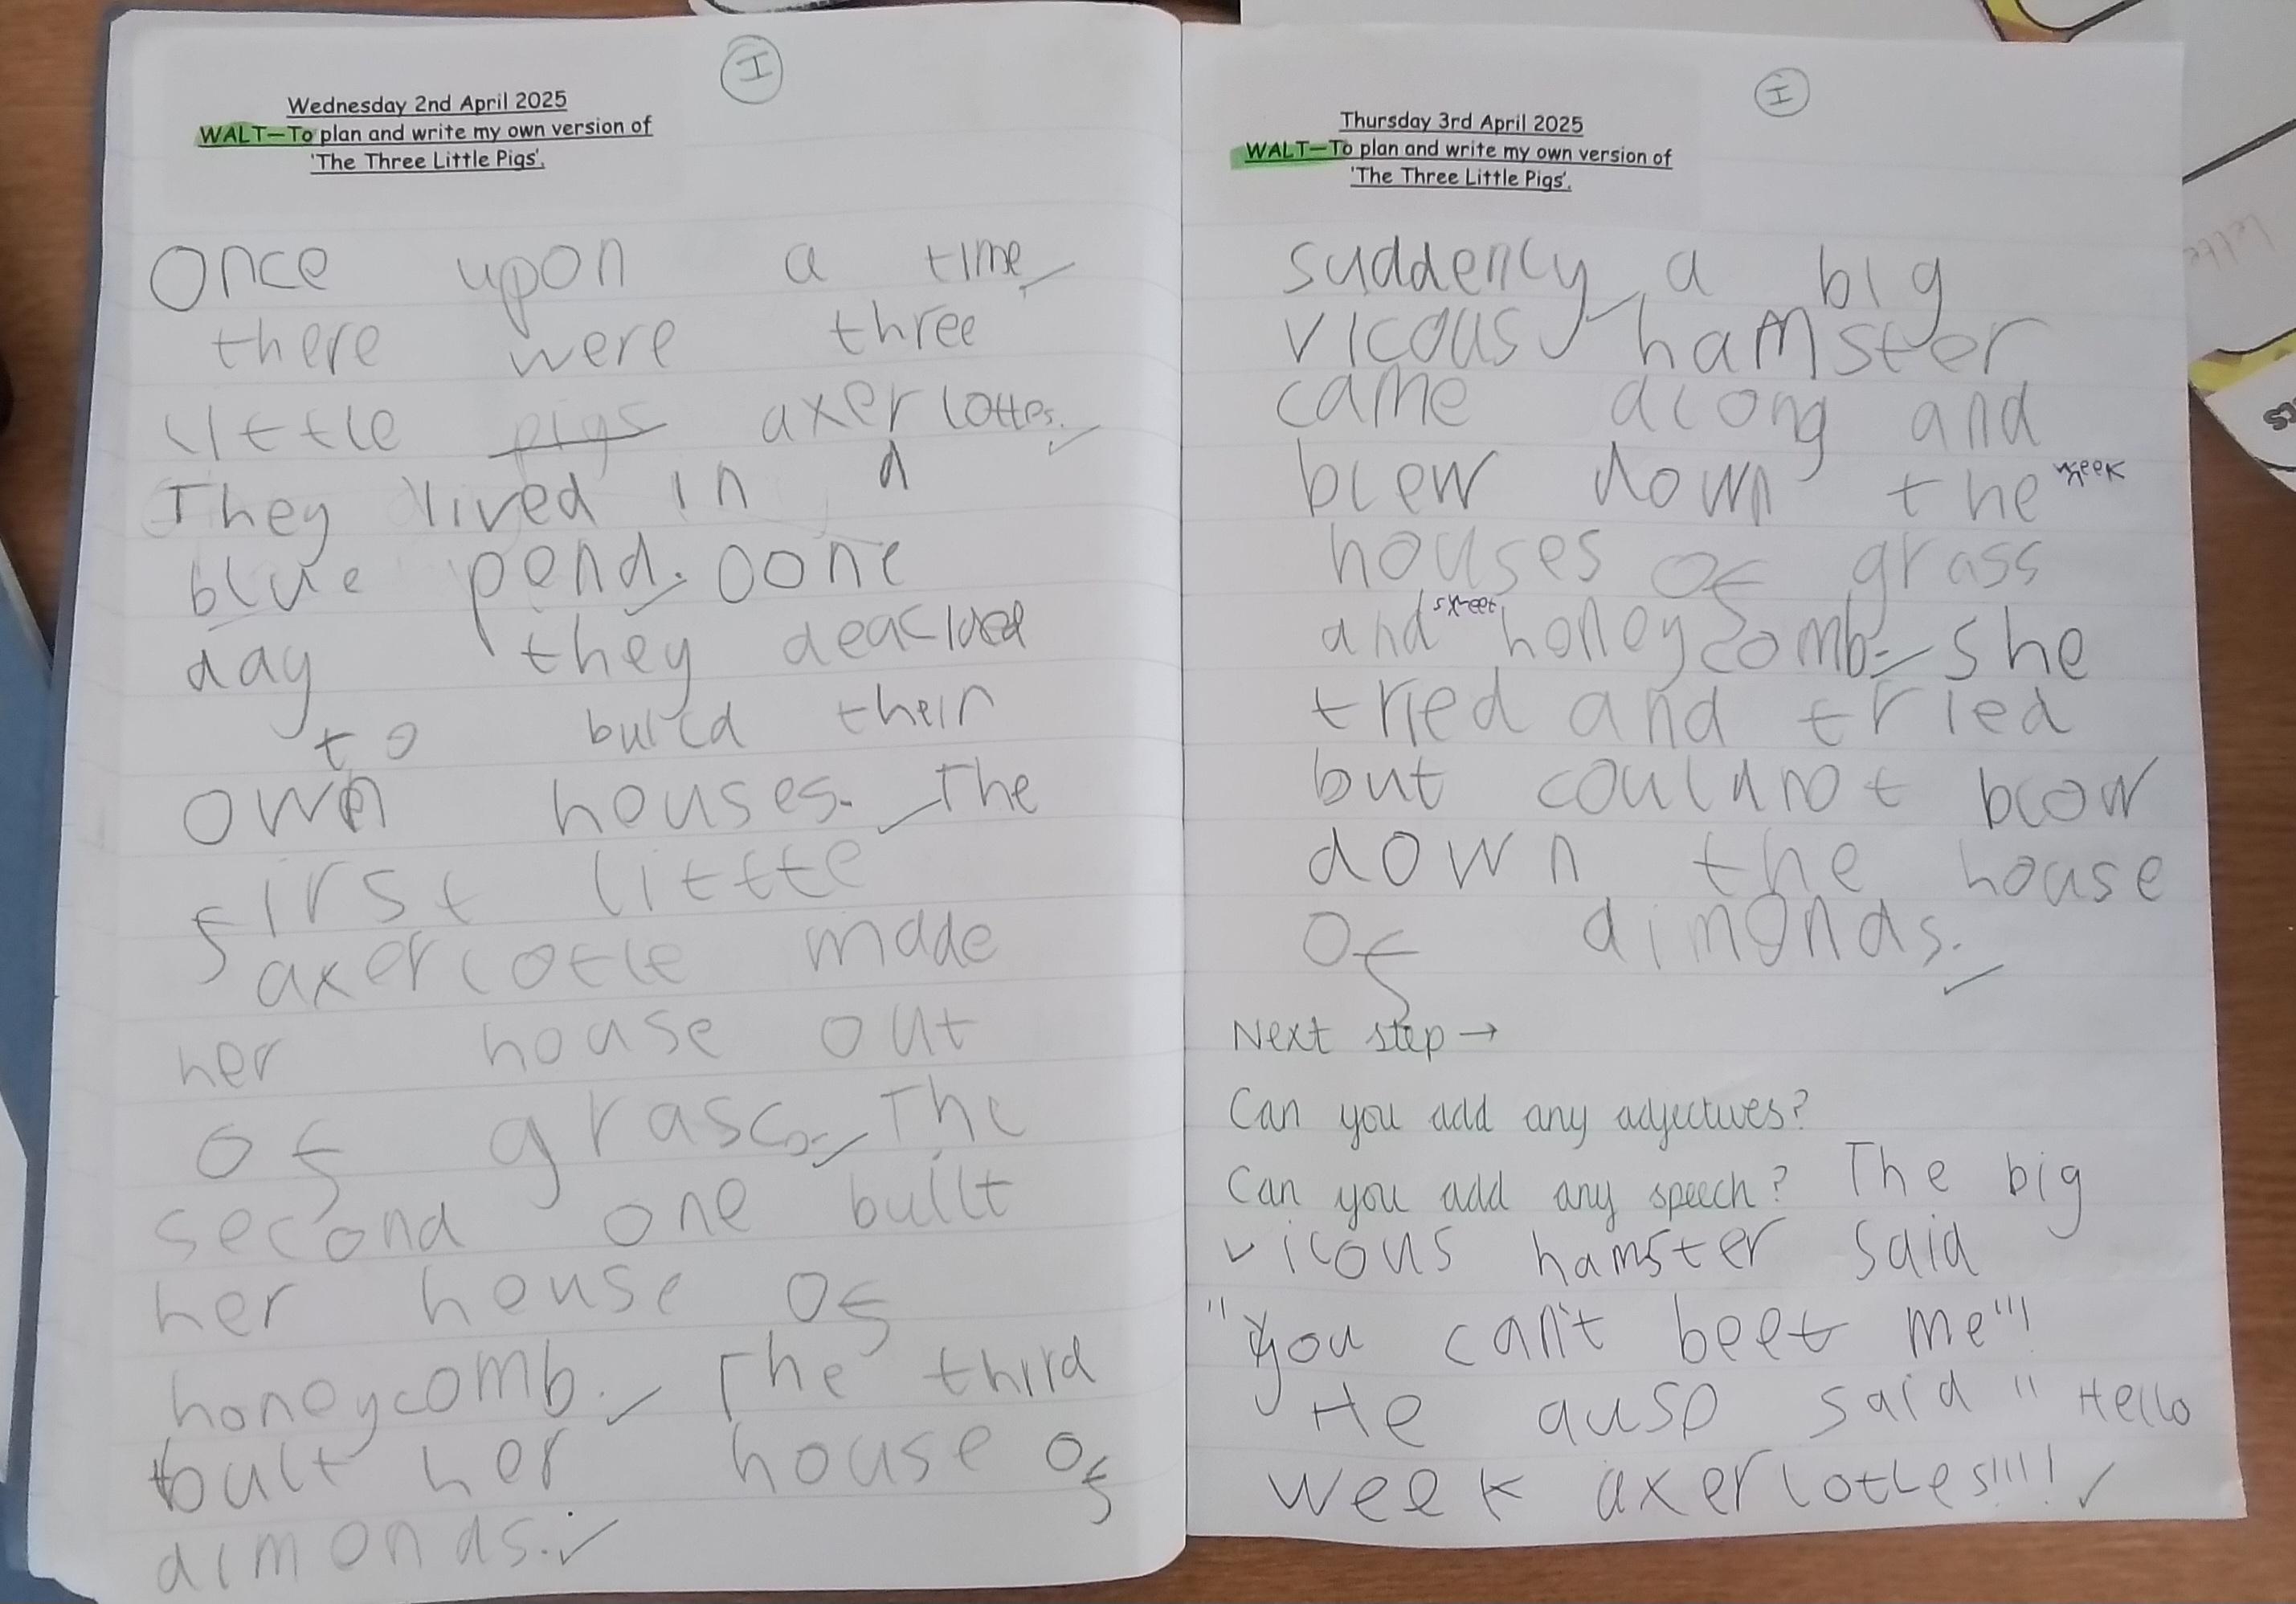 I
Wednesday 2nd April 2025
WALT—To plan and write my own version of
'The Three Little Pigs'.
Once upon a time
there were three
little pigs axerlottes.
They lived in a
blue pond. oone
day they deacided
to build their
own houses. The
first little
axerlotle made
her house out
of grass. The
second one built
her house of
honeycomb. The third
bult her house of
dimonds.
I
Thursday 3rd April 2025
WALT—To plan and write my own version of
'The Three Little Pigs'.
suddenly a big
vicous hamster
came along and
blew down the week
houses of grass
and sweet honeycomb. she
tried and tried
but couldnot blow
down the house
of dimonds.
Next step →
Can you add any adjectives?
Can you add any speech? The big
vicous hamster said
"you can't beet me"!
He auso said "Hello
week axerlotles!!!!!